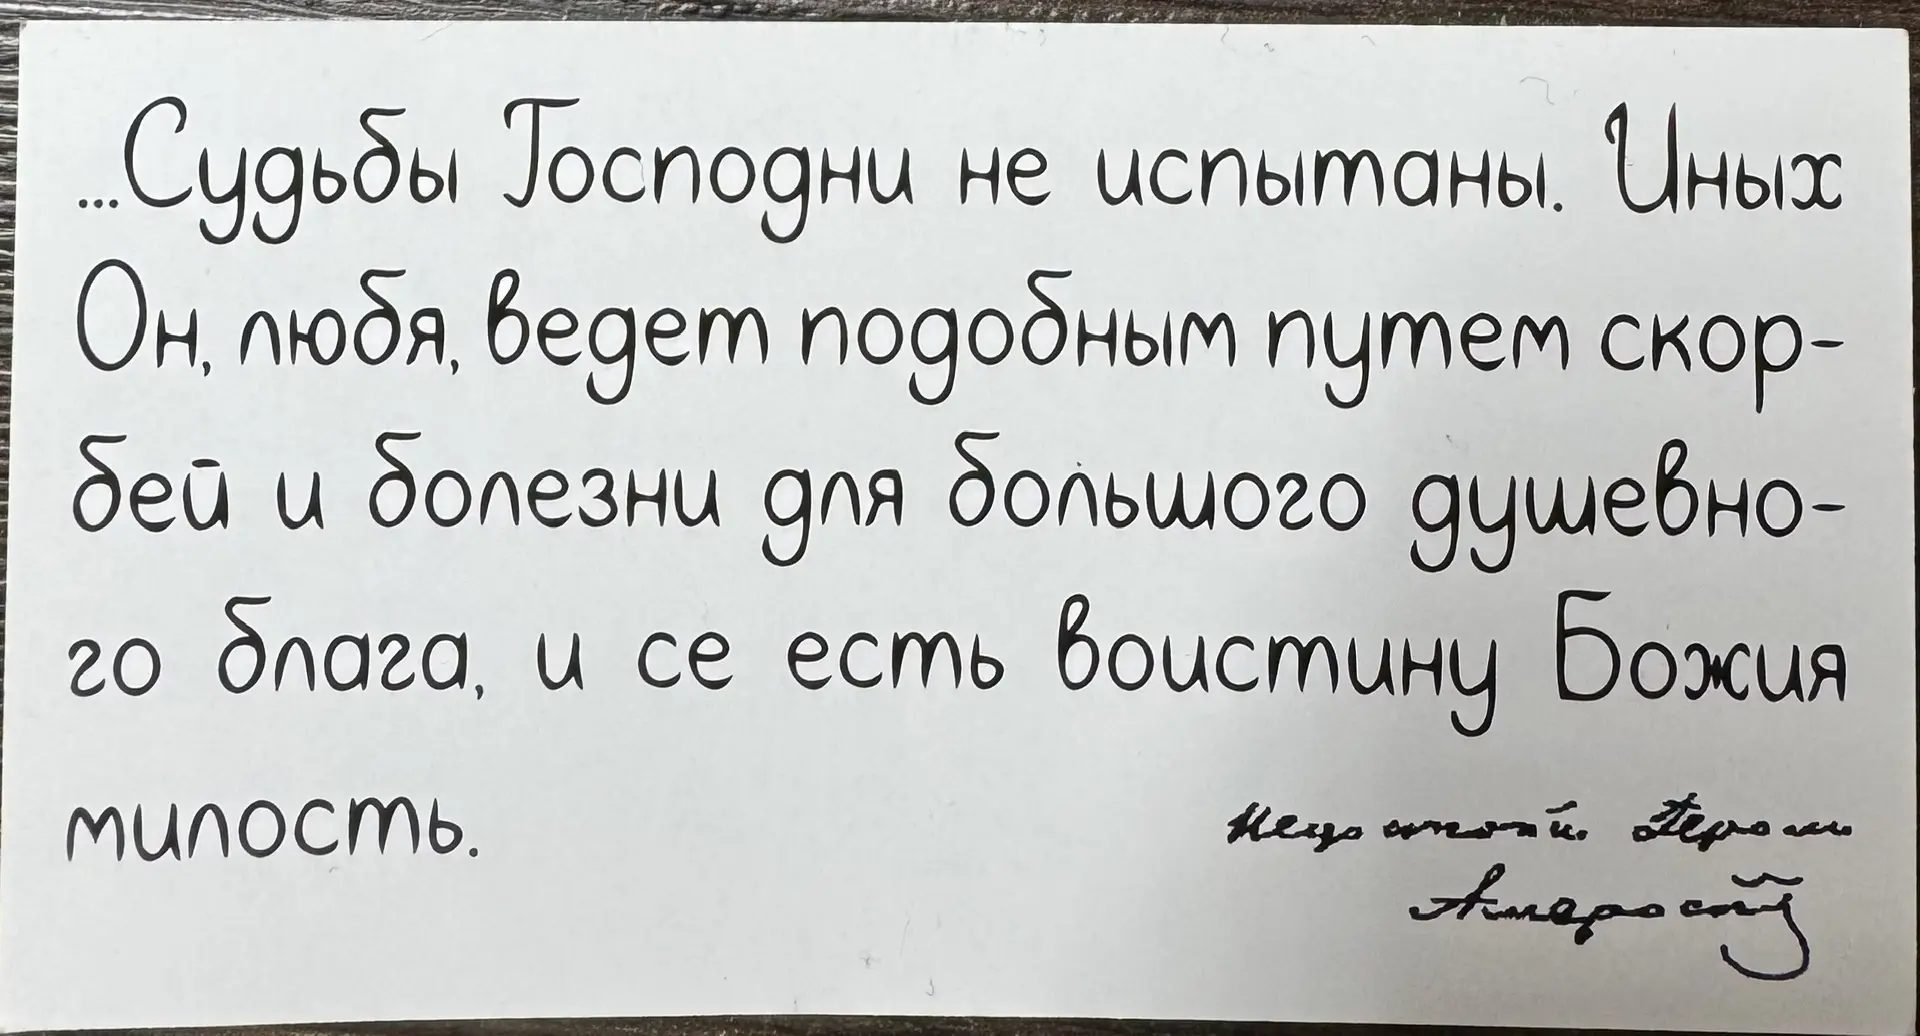 ...Судьбы Господни не испытаны. Иных
Он, любя, ведет подобным путем скор-
бей и болезни для большого душевно-
го блага, и се есть воистину Божия
милость.